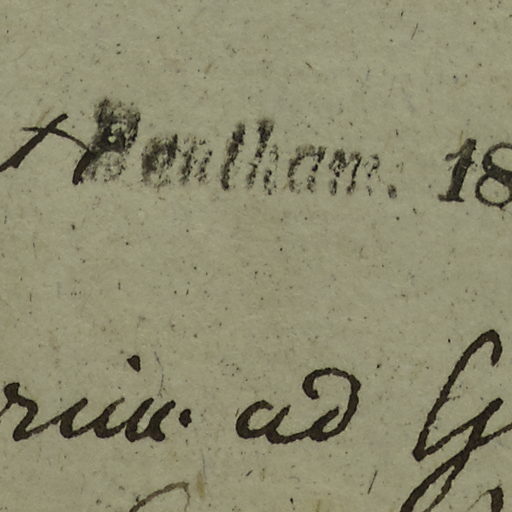 Bentham. 18
ad G